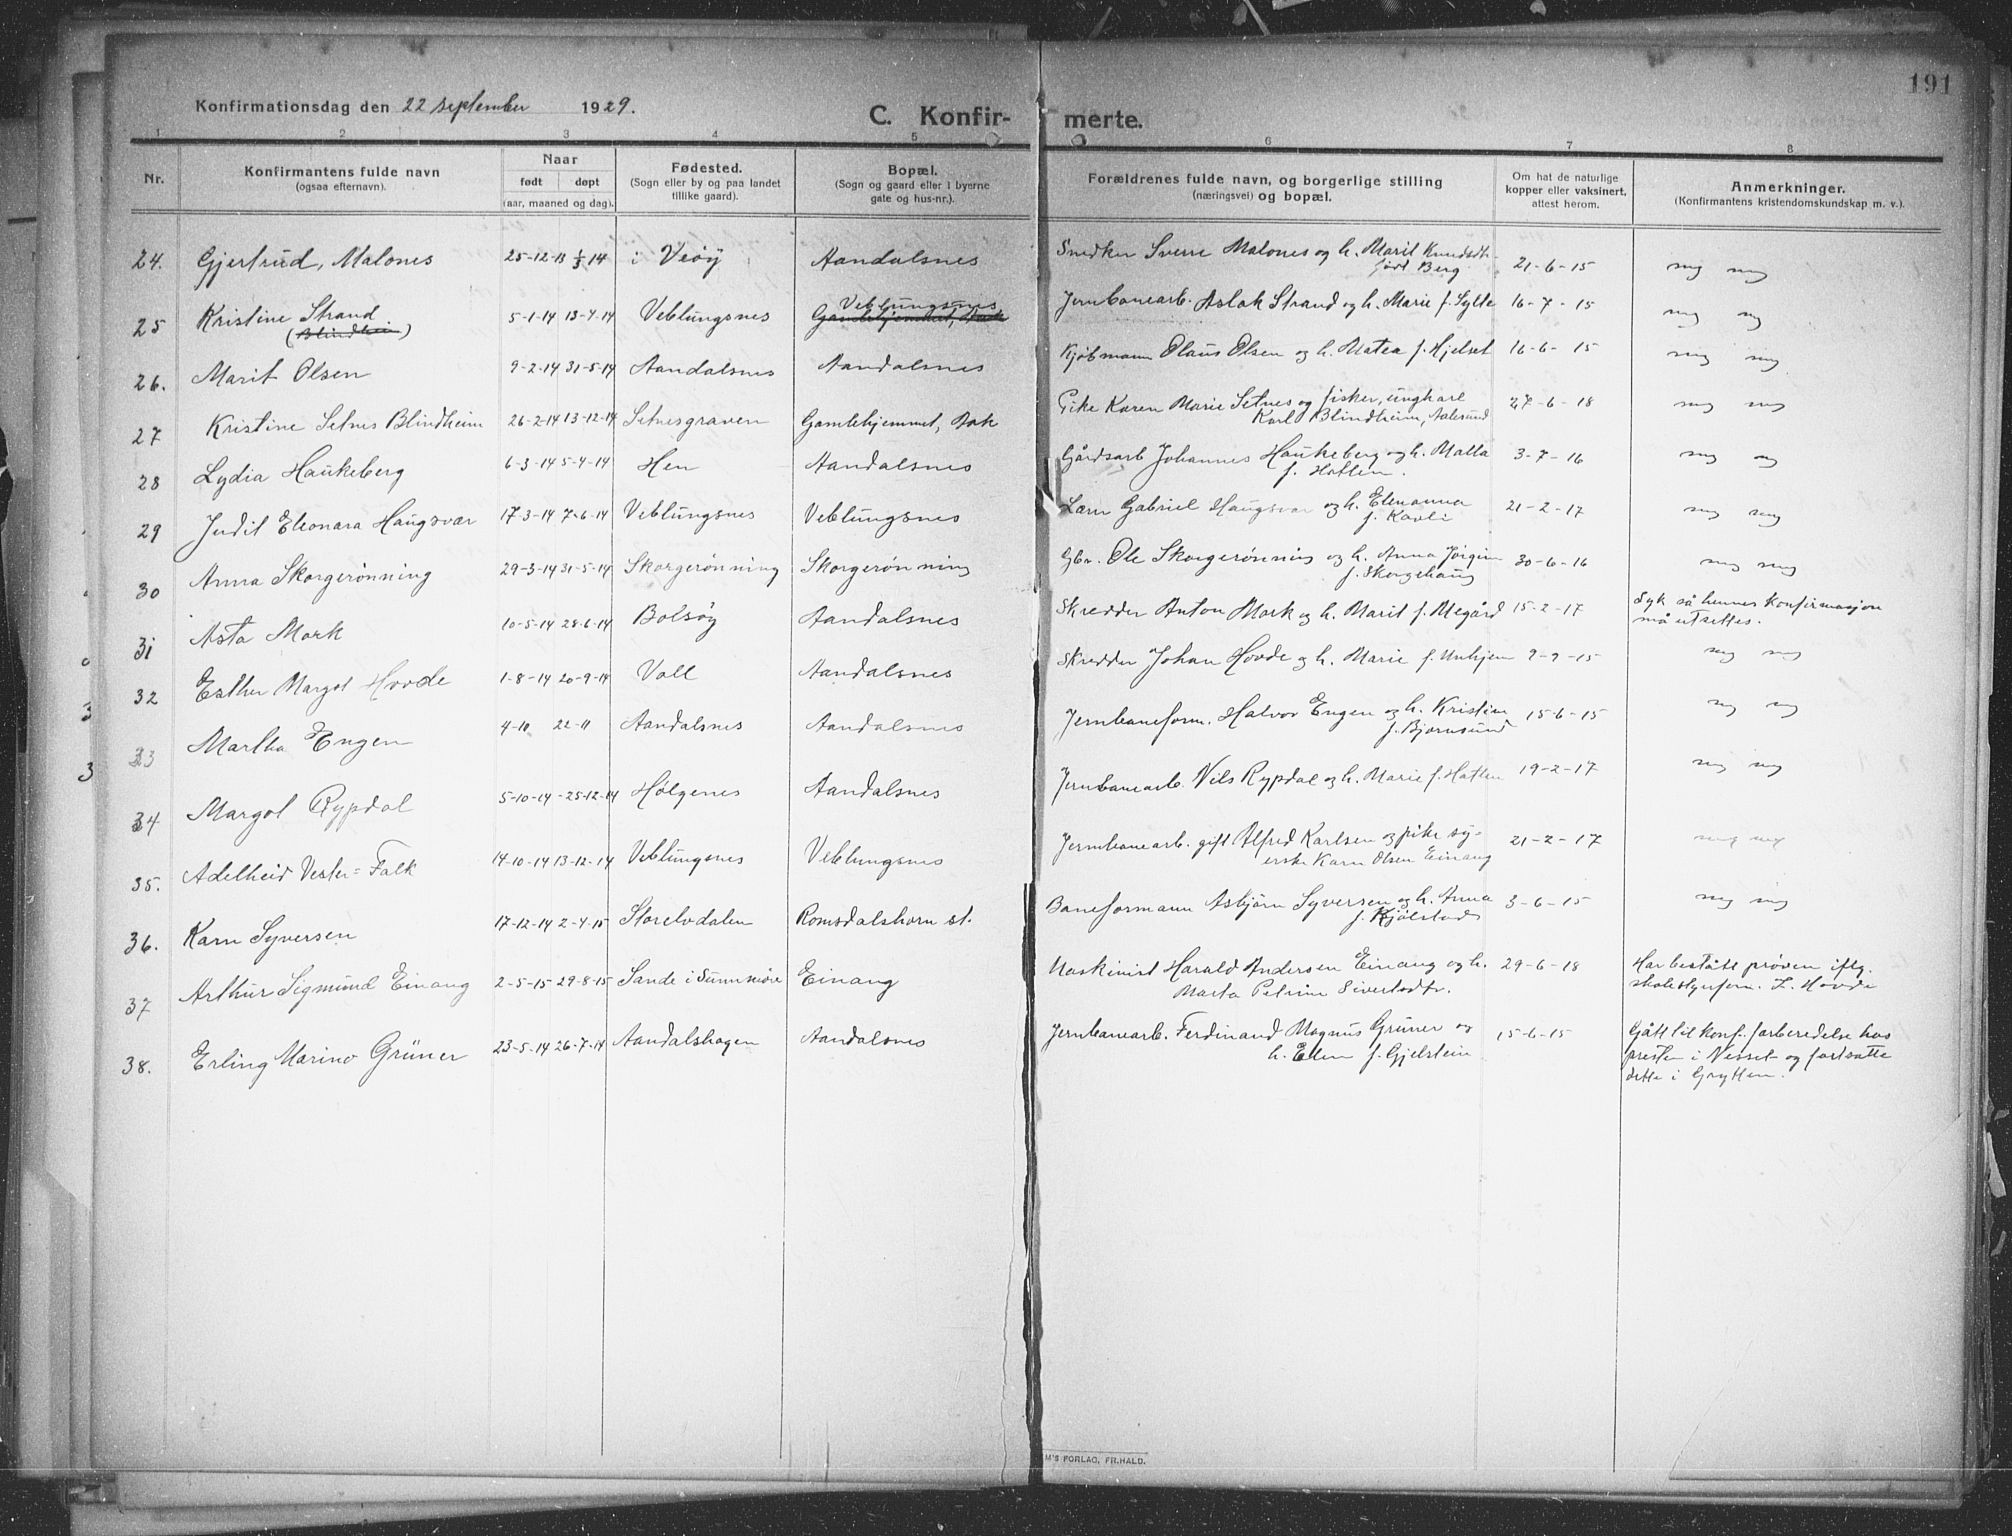 191
Konfirmationsdag den 22 september 1929.
C. Konfir- merte.
1 2 3 4 5 6 7 8
Nr.
Konfirmantens fulde navn
(ogsaa efternavn).
Naar
født døpt
(aar, maaned og dag).
Fødested.
(Sogn eller by og paa landet
tillike gaard).
Bopæl.
(Sogn og gaard eller i byerne
gate og hus-nr.).
Forældrenes fulde navn, og borgerlige stilling
(næringsvei) og bopæl.
Om hat de naturlige
kopper eller vaksinert,
attest herom.
Anmerkninger.
(Konfirmantens kristendomskundskap m. v.).
24. Gjertrud, Malones 25-12-13 1/3 14 i Veøy Aandalsnes Snedker Sverre Malones og h. Marit Knudsdtr.
født Berg 21-6-15 mg mg
25 Kristine Strand 5-1-14 13-4-14 Veblungsnes Veblungsnes Jernbanearb. Aslak Strand og h. Marie f. Sylte 16-7-15 mg mg
(Blindheim) Gamlehjemmet, Bak
26. Marit Olsen 9-2-14 31-5-14 Aandalsnes Aandalsnes Kjøbmann Olaus Olsen og h. Matea f. Hjelset 16-6-15 mg mg
27 Kristine Setnes Blindheim 26-2-14 13-12-14 Setnesgraven Gamlehjemmet, Bak Pike Karen Marie Setnes og fisker, ungkarl
Karl Blindheim, Aalesund 27-6-18 mg mg
28 Lydia Haukeberg 6-3-14 5-4-14 Hen Aandalsnes Gårdsarb Johannes Haukeberg og h. Malla
f. Hatlen. 3-7-16 mg mg
29 Judit Eleonara Haugsvær 17-3-14 7-6-14 Veblungsnes Veblungsnes Lærer Gabriel Haugsvær og h. Elenanna
f. Kavli 21-2-17 mg mg
30 Anna Skorgerønning 29-3-14 31-5-14 Skorgerønning Skorgerønning Gbr. Ole Skorgerønning og h. Anna Jørgine
f. Skorgehaug 30-6-16 mg mg
31 Asta Mork 10-5-14 28-6-14 Bolsøy Aandalsnes Skredder Anton Mork og h. Marit f. Megård 15-2-17 Syk så hennes konfirmasjon
må utsettes.
32 Esther Margot Hovde 1-8-14 20-9-14 Voll Aandalsnes Skredder Johan Hovde og h. Marie f. Unhjem 9-9-15 mg mg
33 Martha Engen 4-10 22-11 Aandalsnes Aandalsnes Jernbaneform. Halvor Engen og h. Kristine
f. Bjørnsund 15-6-15 mg mg
34 Margot Rypdal 5-10-14 25-12-14 Holgenes Aandalsnes Jernbanearb. Nils Rypdal og h. Marie f. Hatlen 19-2-17 mg mg
35. Adelheid Vester=Falk 14-10-14 13-12-14 Veblungsnes Veblungsnes Jernbanearb. gift Alfred Karlsen og pike sy-
erske Karen Olsen Einang 21-2-17 mg mg
36. Karen Syversen 17-12-14 2-4-15 Storelvdalen Romsdalshorn st. Baneformann Asbjørn Syversen og h. Anna
f. Kjølstad 3-6-15 mg mg
37 Arthur Sigmund Einang 2-5-15 29-8-15 Sande i Sunnmøre Einang Maskinist Harald Andersen Einang og h.
Marta Petrine Sivertsdtr. 29-6-18 Har bestått prøven iflg.
skolestyrfom. L. Hovde
38. Erling Marino Grüner 23-5-14 26-7-14 Aandalshagen Aandalsnes Jernbanearb. Ferdinand Magnus Grüner og
h. Elen f. Gjelstein 15-6-15 Gått til konf. forberedelse hos
presten i Nesset og fortsatte
dette i Grytten.
M'S FORLAG, FR.HALD.